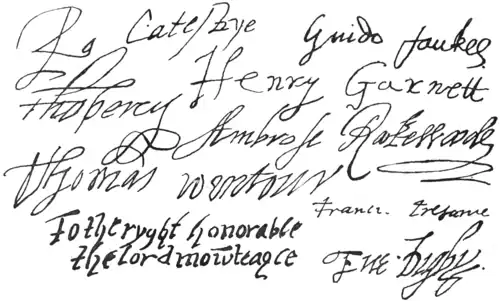 Ro Catesbye
Guido faukes
Tho percy
Henry Garnett
Ambrose Rokewoode
Thomas wintour
Franci. Tresame
To the ryght honorable
the lord mowteagle
Eue. Digby